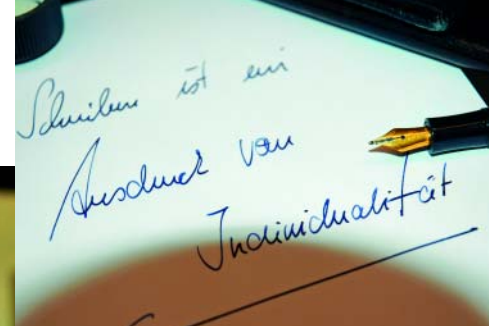 Schreiben ist ein
Ausdruck von
Individualität